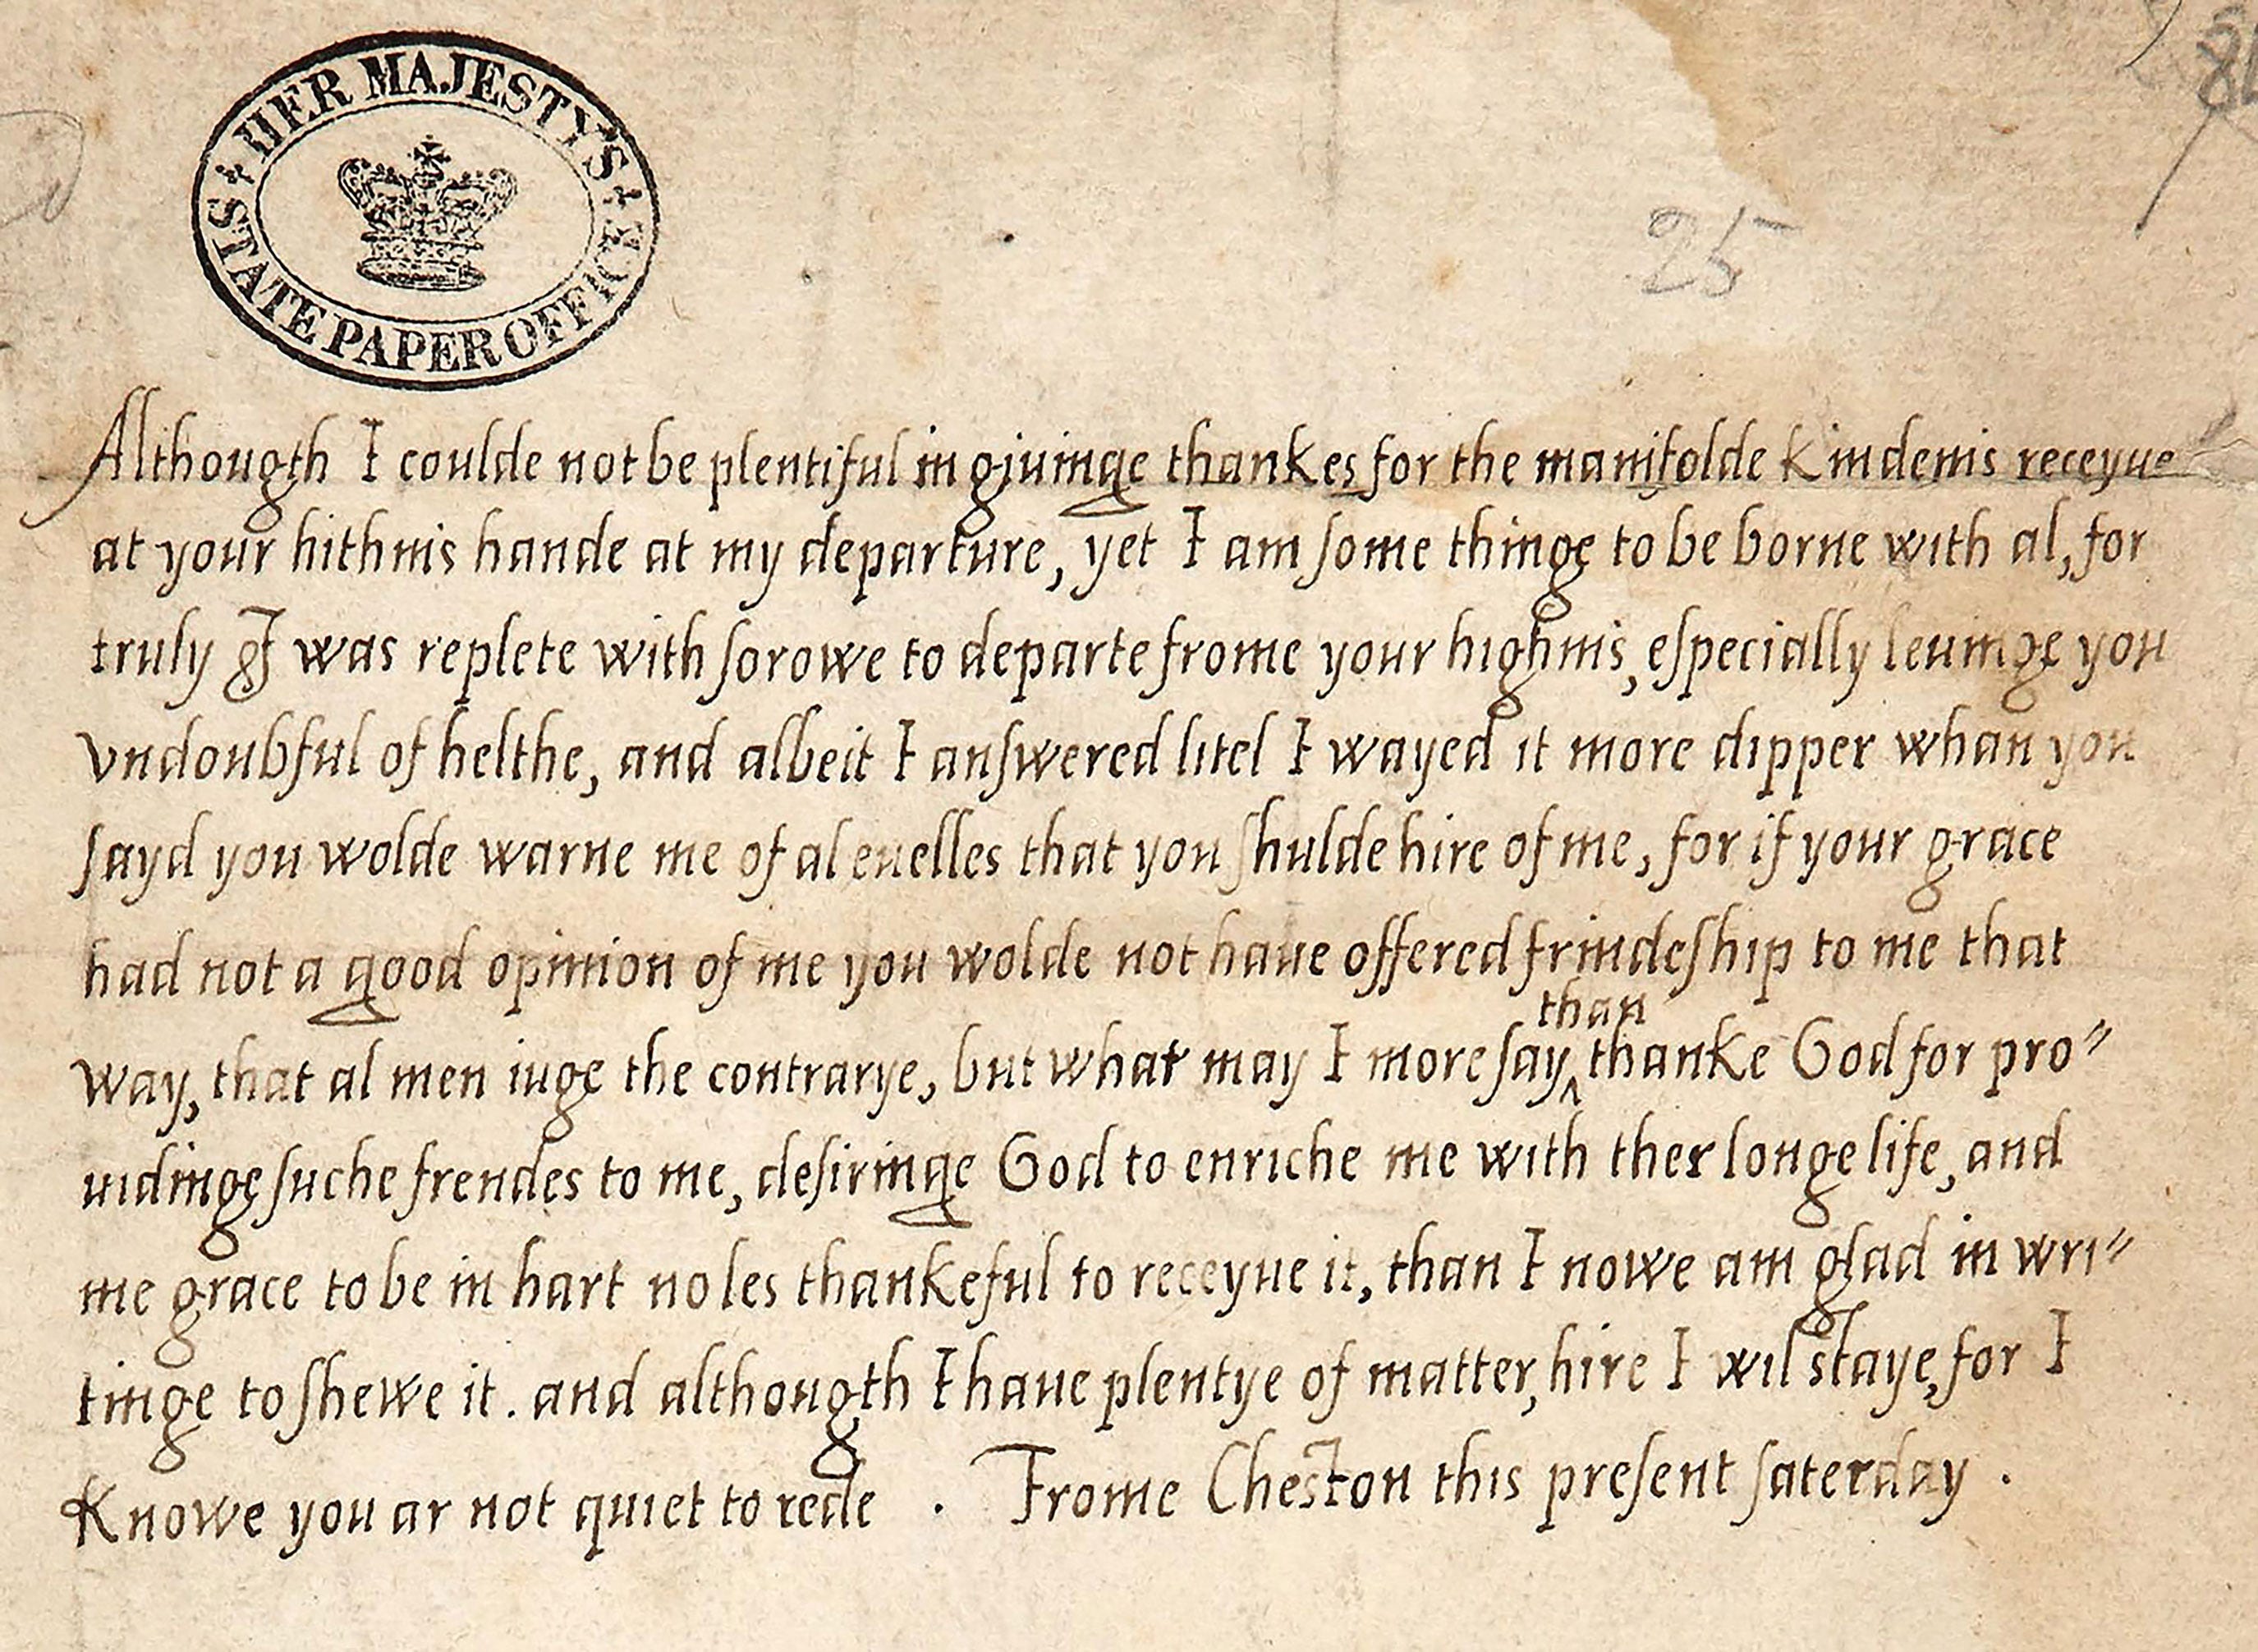 HER MAJESTY'S
STATE PAPER OFFICE
25
Althougth I coulde not be plentiful in giuinge thankes for the manifolde kindenis receyue
at your hithnis hande at my departure, yet I am some thinge to be borne with al, for
truly I was replete with sorowe to departe frome your highnis, especially leuinge you
vndoubful of helthe, and albeit I answered litel I wayed it more dipper whan you
sayd you wolde warne me of al euelles that you shulde hire of me, for if your grace
had not a good opinion of me you wolde not haue offered frindeship to me that
than
way, that al men iuge the contrarye, but what may I more say thanke God for pro"
uidinge suche frendes to me, desiringe God to enriche me with ther longe life, and
me grace to be in hart no les thankeful to receyue it, than I nowe am glad in wri"
tinge to shewe it. and althougth I haue plentye of matter, hire I wil staye, for I
Knowe you ar not quiet to rede . Frome Cheston this present saterday .